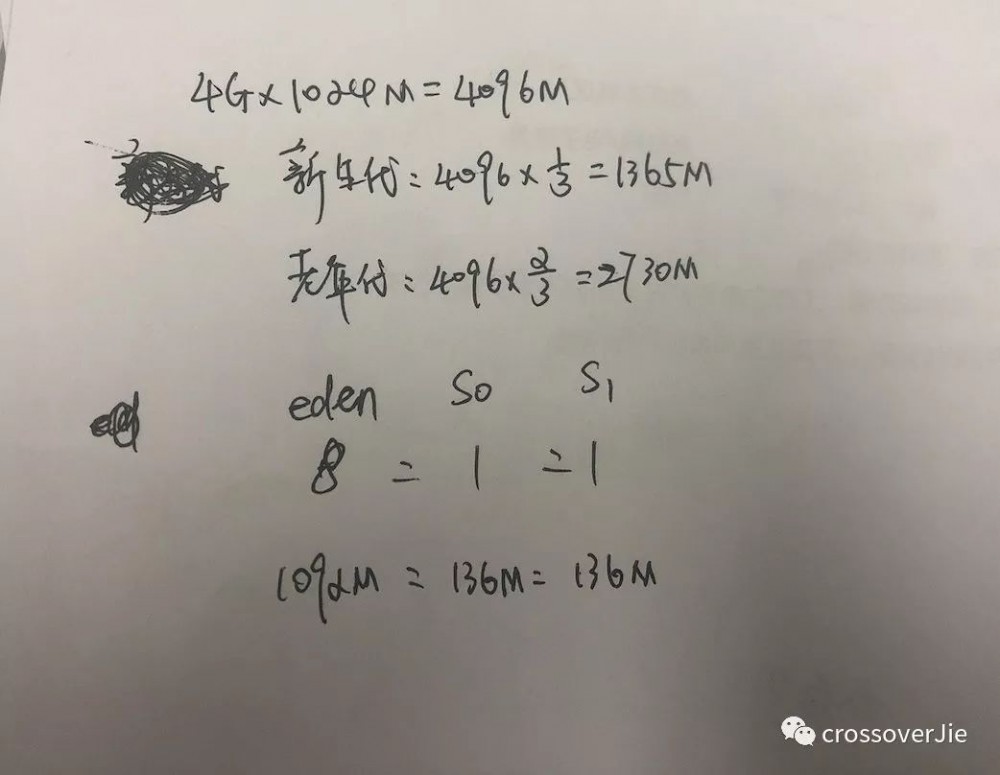 4G×1024M=4096M
新年代：4096×1/3=1365M
老年代：4096×2/3=2730M
eden S0 S1
8 = 1 = 1
1092M = 136M = 136M
crossoverJie